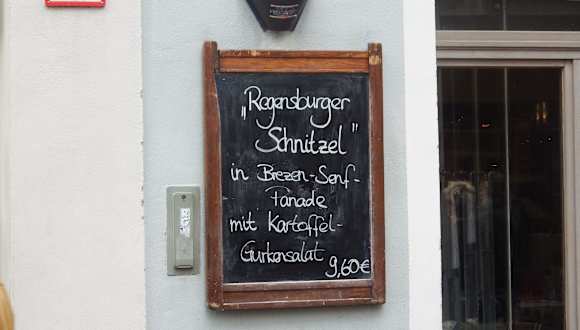 „Regensburger
Schnitzel"
in Brezen-Senf-
Panade
mit Kartoffel-
Gurkensalat
9,60€